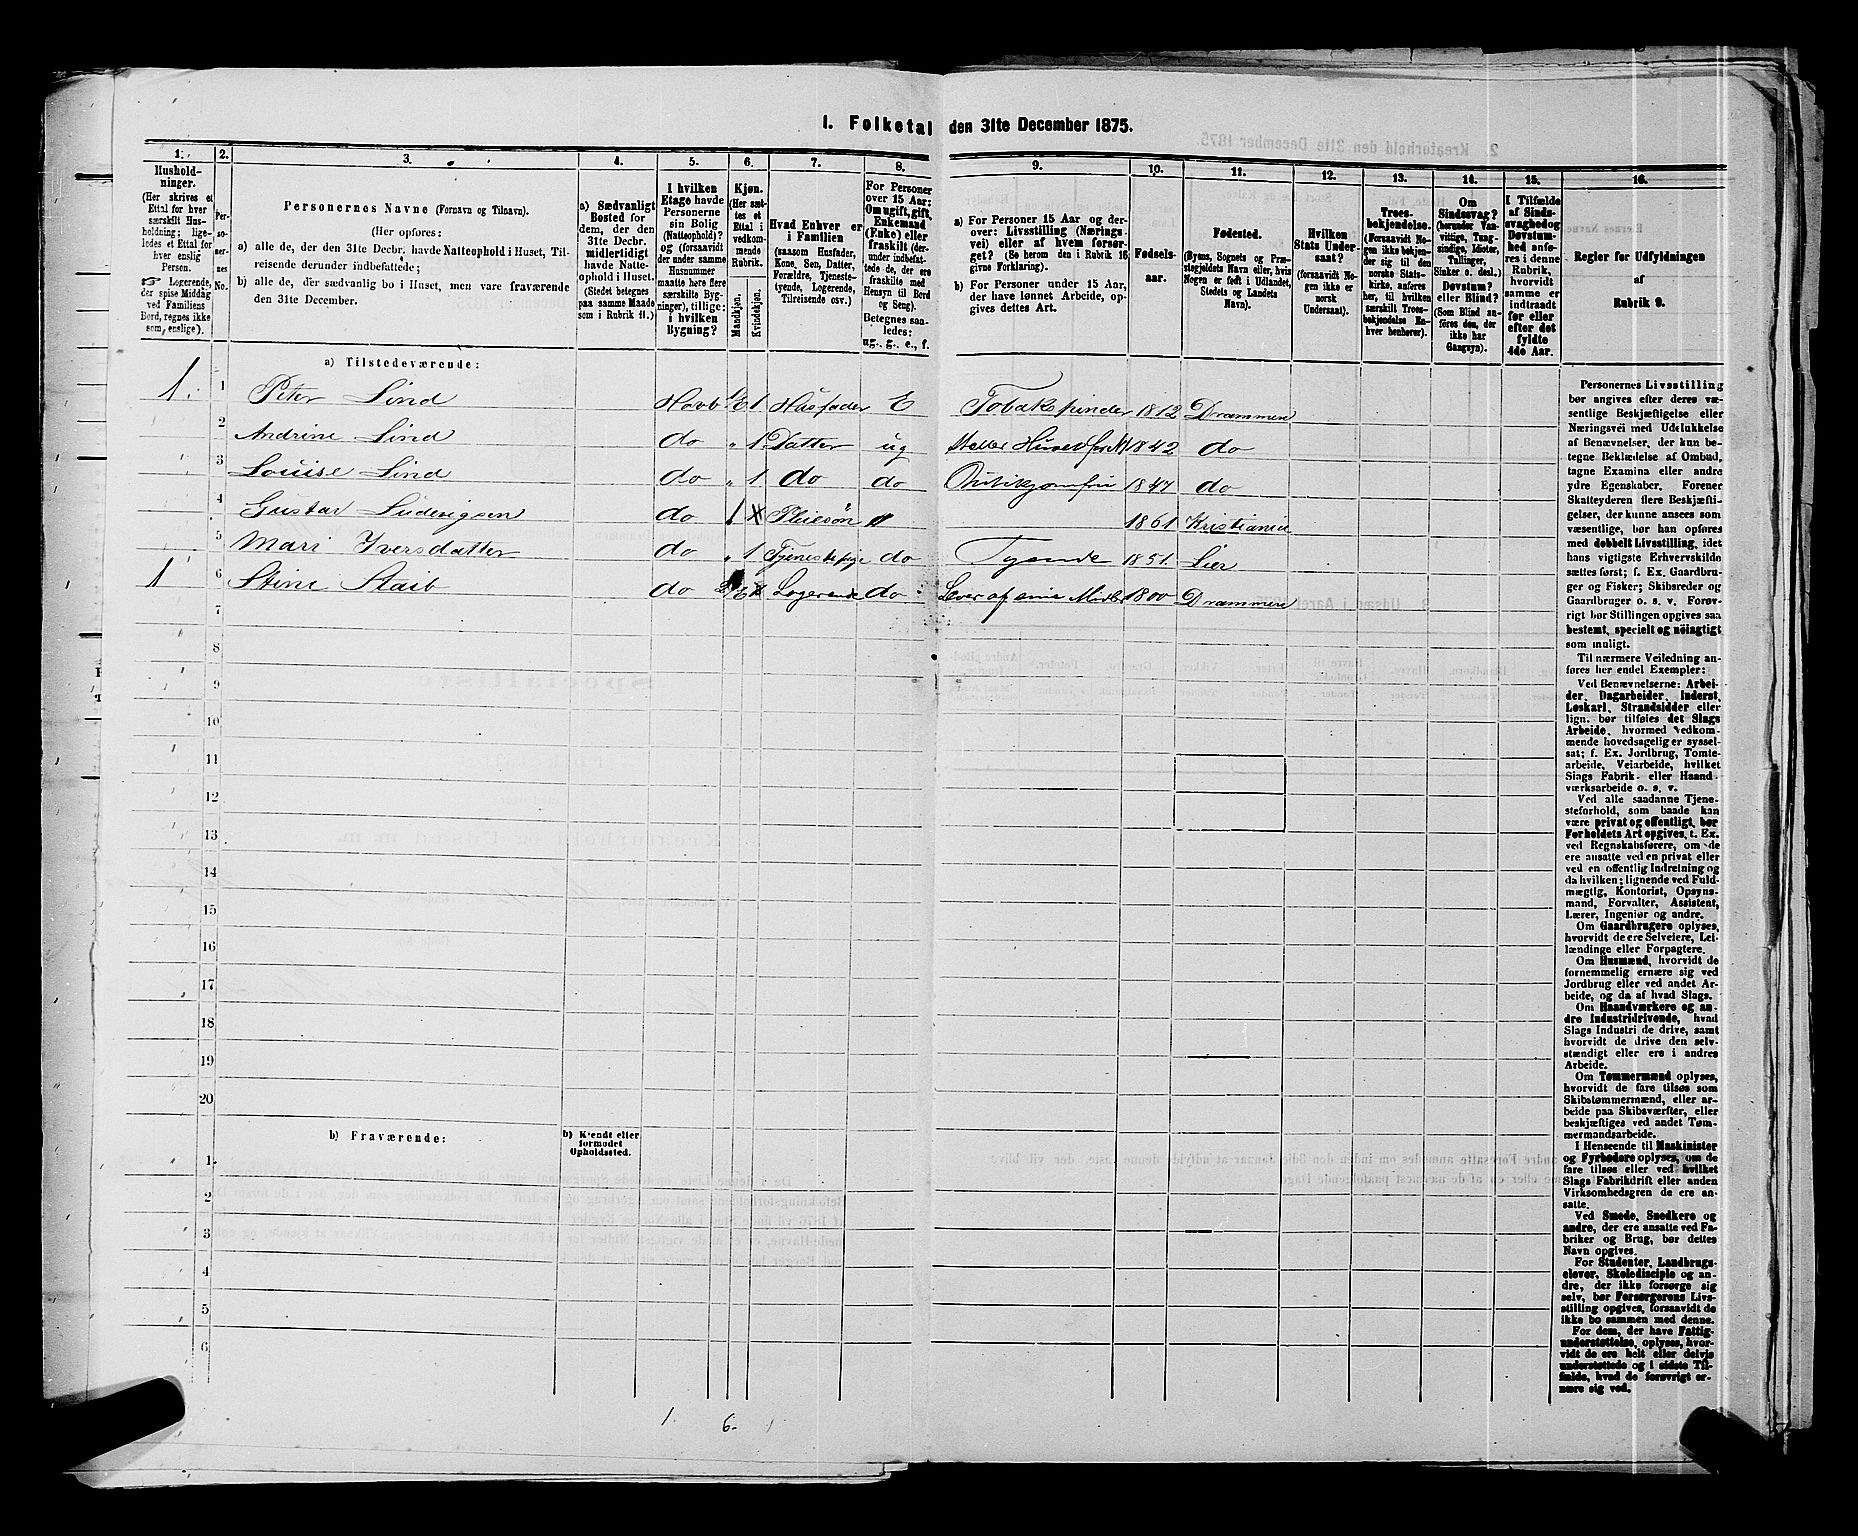 I. Folketal den 31te December 1875.
1. 2. 3. 4. 5. 6. 7. 8. 9. 10. 11. 12. 13. 14. 15. 16.
Husholdninger.
(Her skrives et
Ettal for hver
særskilt Husholdning;
ligeledes et Ettal for
hver enslig
Person.
Logerende,
der spise Middag
ved Familiens
Bord, regnes ikke
som enslige).
Personernes No.
Personernes Navne (Fornavn og Tilnavn).
(Her opføres:
a) alle de, der den 31te Decbr. havde Natteophold i Huset, Tilreisende derunder indbefattede;
b) alle de, der sædvanlig bo i Huset, men vare fraværende
den 31te December.
a) Sædvanligt
Bosted for
dem, der den
31te Decbr.
midlertidigt
havde Natteophold
i Huset.
(Stedet betegnes
paa samme Maade
som i Rubrik 11.)
I hvilken
Etage havde
Personerne
sin Bolig
(Natteophold)?
og (forsaavidt
der under samme
Husnummer
maatte høre flere
særskilte Bygninger),
tillige:
i hvilken
Bygning?
Kjøn.
(Her sættes et
Ettal i
vedkommende
Rubrik.
Mandkjøn.
Kvindekjøn.
Hvad Enhver er
i Familien
(saasom Husfader,
Kone, Søn, Datter,
Forældre, Tjenestetyende,
Logerende,
Tilreisende osv.)
For Personer
over 15 Aar:
Om ugift, gift,
Enkemand
(Enke) eller
fraskilt (derunder indbefattede de, der ere
fraskilte med
Hensyn til Bord
og Seng).
Betegnes saaledes:
ug., g., e., f.
a) For Personer 15 Aar og derover: Livsstilling (Næringsvei) eller af hvem forsørget? (Se herom den i Rubrik 16
givne Forklaring).
b) For Personer under 15 Aar,
der have lønnet Arbeide, opgives dettes Art.
Fødselsaar.
Fødested.
(Byens, Sognets og Præstegjeldets Navn eller, hvis
Nogen er født i Udlandet,
Stedets og Landets
Navn).
Hvilken
Stats Undersaat?
(forsaavidt Nogen ikke er
norsk
Undersaat).
Troesbekjendelse.
(Forsaavidt Nogen ikke bekjender sig til den
norske Statskirke, anføres
her, til hvilken
særskilt Troesbekjendelse Enhver henhører).
Om
Sindssvag?
(herunder Vanvittige, Tungsindige, Idioter,
Tullinger,
Sinker o. desl.)
Døvstum?
eller Blind?
(Som Blind anføres den, der
ikke har
Gangsyn).
I Tilfælde
af Sindssvaghed og
Døvstumhed anføres i denne
Rubrik,
hvorvidt
samme er
indtraadt
før eller
efter det
fyldte
4de Aar.
Regler for Udfyldningen
af
Rubrik 9.
a) Tilstedeværende:
1. 1 Peter Lind Hovb 1E 1 Husfader E Tobakspinder 1812 Drammen
2 Andrine Lind do „ 1 Datter ug Steller Huset for 1842 do
3 Louise Lind do „ 1 do do Butikjomfru 1847 do
4 Gustav Ludvigsen do 1 Pleiesøn 1861 Kristiania
5 Mari Iversdatter do „ 1 Tjenestepige do Tyende 1851. Lier
1 6 Stine Staib do Logerende do Lever af sine Midler 1800 Drammen
7
8
9
10
11
12
13
14
15
16
17
18
19
20
b) Fraværende:
b) Kjendt eller
formodet
Opholdssted.
1
2
3
4
5
6
1. 6. 1
Personernes Livsstilling
bør angives efter deres væsentlige Beskjæftigelse eller
Næringsvei med Udelukkelse
af Benævnelser, der kun betegne Beklædelse af Ombud,
tagne Examina eller andre
ydre Egenskaber. Forener
Skatteyderen flere Beskjæftigelser, der kunne ansees som
væsentlige, bør han opføres
med dobbelt Livsstilling, idet
hans vigtigste Erhvervskilde
sættes først; f. Ex. Gaardbruger og Fisker; Skibsreder og
Gaardbruger o. s. v. Forøvrigt bør Stillingen opgives saa
bestemt, specielt og nöiagtigt
som muligt.
Til nærmere Veiledning anføres her endel Exempler:
Ved Benævnelserne: Arbeider, Dagarbeider, Inderst,
Løskarl, Strandsidder eller
lign. bør tilføies det Slags
Arbeide, hvormed Vedkommende hovedsagelig er sysselsat; f. Ex. Jordbrug, Tomtearbeide, Veiarbeide, hvilket
Slags Fabrik- eller Haandværksarbeide o. s. v.
Ved alle saadanne Tjenesteforhold, som baade kan
være privat og offentligt, bør
Forholdets Art opgives, t. Ex.
ved Regnskabsførere, om de
ere ansatte ved en privat eller
ved en offentlig Indretning og
da hvilken; lignende ved Fuldmægtig, Kontorist, Opsynsmand, Forvalter, Assistent,
Lærer, Ingeniør og andre.
Om Gaardbrugere oplyses,
hvorvidt de ere Selveiere, Leilændinge eller Forpagtere.
Om Husmænd, hvorvidt de
fornemmelig ernære sig ved
Jordbrug eller ved andet Arbeide, og da af hvad Slags.
Om Haandværkere og andre Industridrivende, hvad
Slags Industri de drive, samt
hvorvidt de drive den selvstændigt eller ere i andres
Arbeide.
Om Tømmermænd oplyses,
hvorvidt de fare tilsøs som
Skibstømmermænd, eller arbeide paa Skibsværfter, eller
beskjæftiges ved andet Tømmermandsarbeide.
I Henseende til Maskinister
og Fyrbødere oplyses, om de
fare tilsøs eller ved hvilket
Slags Fabrikdrift eller anden
Virksomhedsgren de ere ansatte.
Ved Smede, Snedkere og
andre, der ere ansatte ved Fabriker og Brug, bør dettes
Navn opgives.
For Studenter, Landbrugselever, Skoledisciple og andre, der ikke forsørge sig
selv, bør Forsørgerens Livsstilling opgives, forsaavidt de
ikke bo sammen med denne.
For dem, der have Fattigunderstøttelse, oplyses, hvorvidt de ere helt eller delvis
understøttede og i sidste Tilfælde, hvad de forøvrigt ernære sig ved.